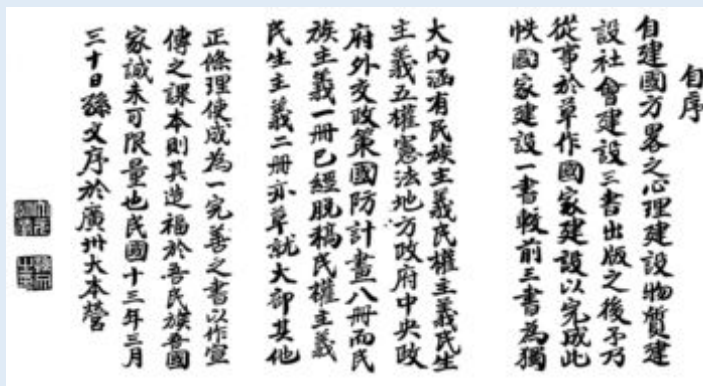 自序
自建國方畧之心理建設物質建
設社會建設三書出版之後予乃
從事於草作國家建設以完成此
帙國家建設一書較前三書為獨
大內涵有民族主義民權主義民生
主義五權憲法地方政府中央政
府外交政策國防計畫八冊而民
族主義一冊已經脫稿民權主義
民生主義二冊亦草就大部其他
正條理使成為一完善之書以作宣
傳之課本則其造福於吾民族吾國
家誠未可限量也民國十三年三月
三十日孫文序於廣州大本營